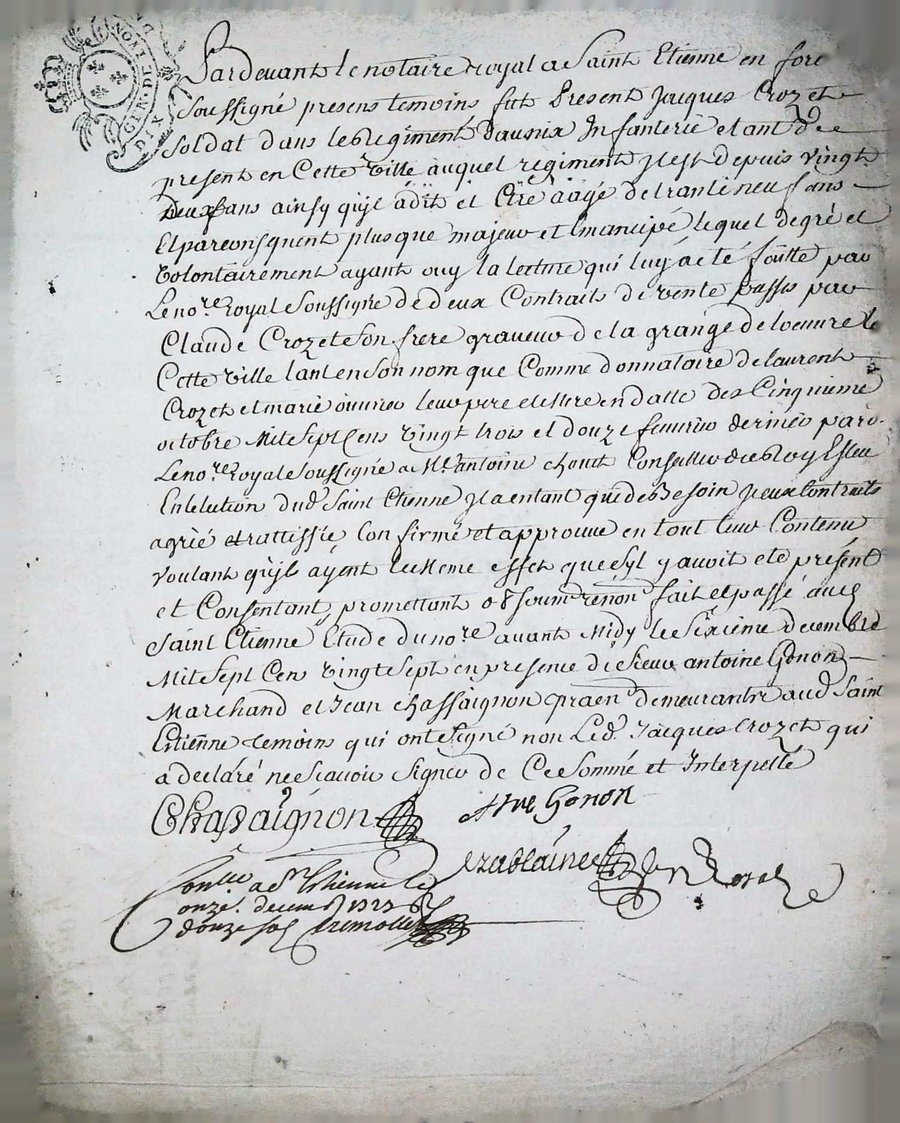 GEN. DE LYON
DIX D
Pardevant le notaire royal a Saint Etienne en fore
soussigné presens temoins fut Present Jacques Crozet
soldat dans le Regiment daunix Infanterie etant de
present en Cette ville auquel regiment jl est depuis vingt
deux ans ainsy qujl a dit et Etre aagé de trante neuf ans
Et par consquent plus que majeur et Emancipé lequel de gré et
volontairement ayant ouy la lecture qui luy a eté faitte par
Le nore Royal soussigné de deux Contrats de vente passés par
Claude Crozet son frere graveur de la grange de loeuvre
Cette ville tant en son nom que Comme donnataire de laurent
Crozet et marie leur pere et Mere en datte des Cinquieme
octobre Mil sept Cens vingt trois et douze feuvrier dernier par
Le nore Royal soussigné a Mr antoine Conseiller du Roy Esleu
En lelution dud Saint Etienne jl a entant que de Besoin jceux Contrats
agrié et rattiffié Confirmé et approuve en tout leur Contenu
voulant qujls ayent le meme effet que syl y auoit eté présent
et Consentant, promettant obs soum renon fait et passé aud
Saint Etienne Etude du nore auant Midy le sixieme decembre
Mil sept Cen vingt sept en presence de sieur antoine Gonon
Marchand et Jean Chassaignon demeurantz aud Saint
Etienne temoins qui ont signé non Led. Jacques Crozet qui
a declaré ne scauoir signer de Ce sommé et Interpellé
Chassaignon Ante Gonon
Ezablaine nre Royal
Conllé a St Etienne le
onze decemb 1727
douze sols Tremollet